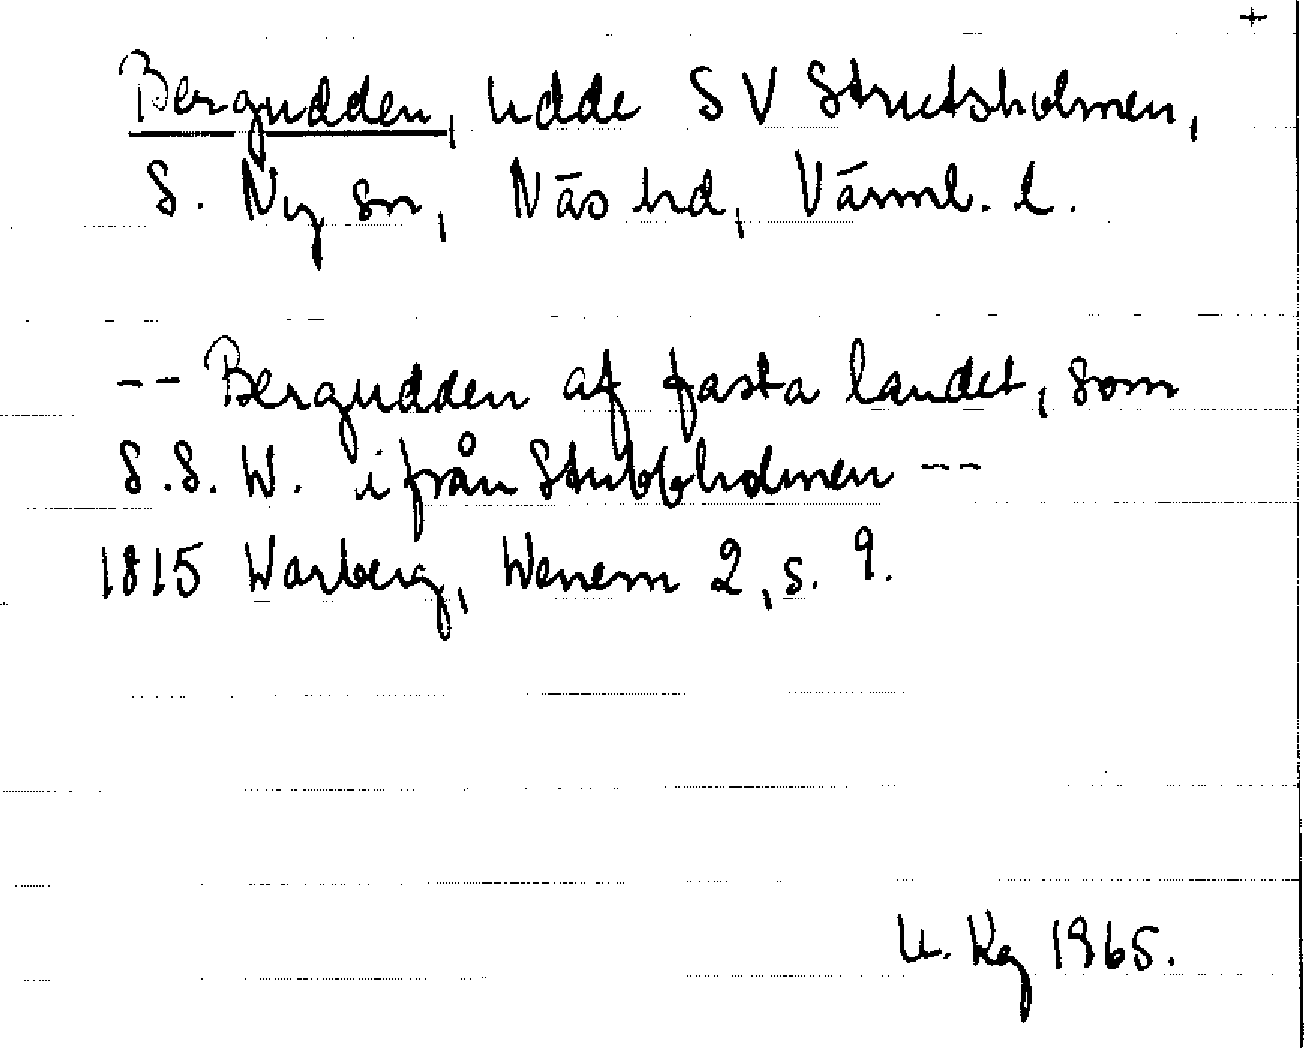 +
Bergudden, udde SV Strutsholmen,
S. Ny sn, Näs hd, Värml. l.
-- Bergudden af fasta landet, som
S.S.W. ifrån Stubbholmen --
1815 Warberg, Wenern 2, s. 9.
U. Kg 1965.